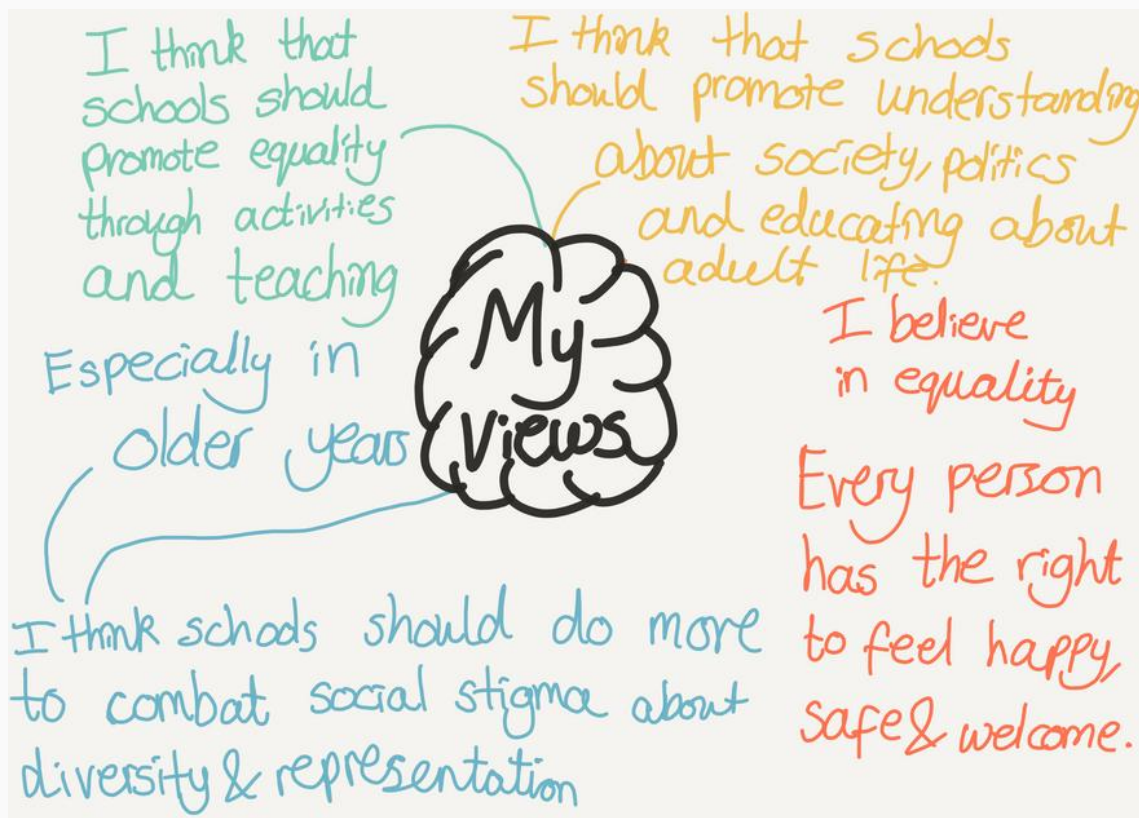 I think that
schools should
promote equality
through activities
and teaching
I think that schools
should promote understanding
about society, politics
and educating about
adult life.
My
Views
I believe
in equality
Every person
has the right
to feel happy,
safe & welcome.
Especially in
older years
I think schools should do more
to combat social stigma about
diversity & representation